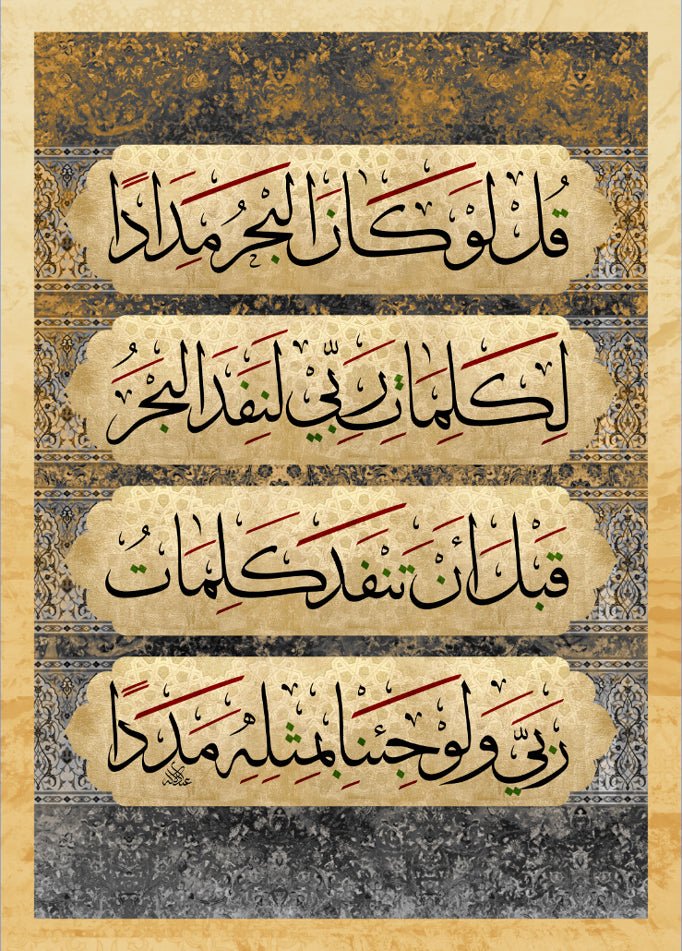 قُلْ لَوْ كَانَ الْبَحْرُ مِدَادًا
لِكَلِمَاتِ رَبِّيْ لَنَفِدَ الْبَحْرُ
قَبْلَ أَنْ تَنْفَدَ كَلِمَاتُ
رَبِّيْ وَلَوْ جِئْنَا بِمِثْلِهِ مَدَدًا